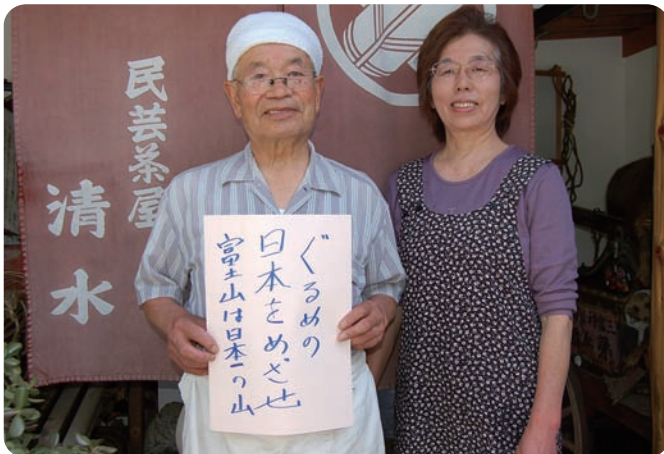 民芸茶屋
清水
ぐるめの
日本をめざせ
富士山は日本一の山